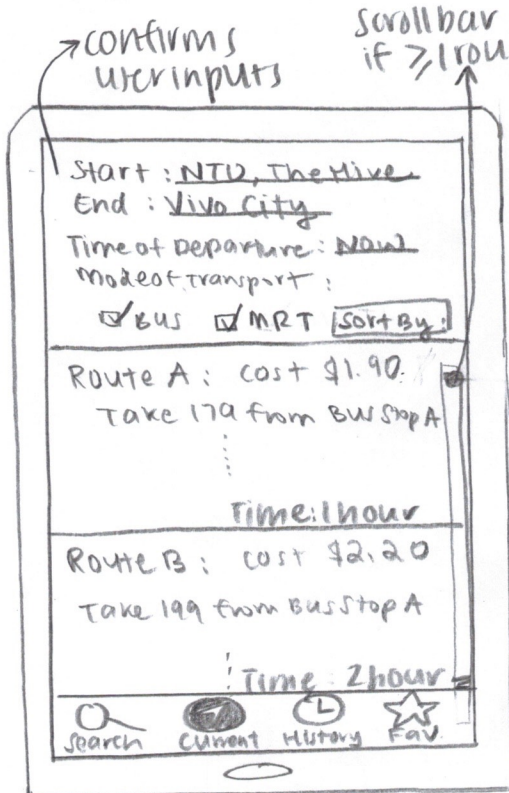 confirms
user inputs
scrollbar
if ≥1 rou
Start : NTU, The Hive
End : Vivo City
Time of Departure : NOW
Mode of Transport :
BUS MRT Sort By :
Route A : cost $1.90
Take 179 from Bus Stop A
Time: 1 hour
Route B : cost $2.20
Take 199 from Bus Stop A
Time : 2 hour
Search Current History Fav.